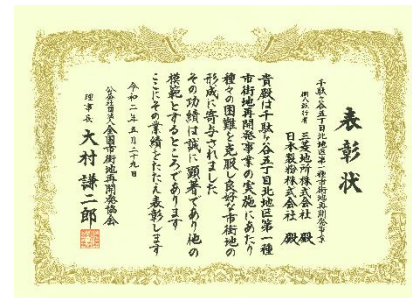 表彰状
千駄ヶ谷五丁目北地区第一種市街地再開発事業
個人施行者 三菱地所株式会社 殿
日本製粉株式会社 殿
貴殿は千駄ヶ谷五丁目北地区第一種
市街地再開発事業の実施にあたり
種々の困難を克服し良好な市街地の
形成に寄与されました
その功績は誠に顕著であり他の
模範とするところであります
ここにその業績をたたえ表彰します
令和二年五月二十九日
公益社団法人全国市街地再開発協会
理事長 大村謙二郎